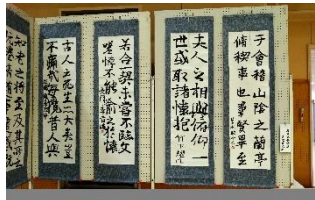 于會稽山陰之蘭亭
脩稧事也羣賢畢至
夫人之相與俯仰一
世或取諸懷抱
若合一契未嘗不臨文
嗟悼不能喻之於懷
古人云死生亦大矣豈
不痛哉每攬昔人興
知老之將至及其所之